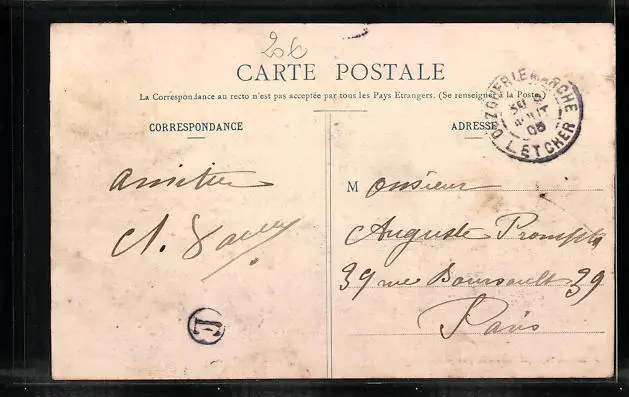 20c
CARTE POSTALE
La Correspondance au recto n'est pas acceptée par tous les Pays Etrangers. (Se renseigner à la Poste)
CORRESPONDANCE
ADRESSE
OUZOUER LE MARCHE
AOUT
05
LET CHER
Amitiés
M onsieur
Auguste Prompt
39 rue Boursault 39
Paris